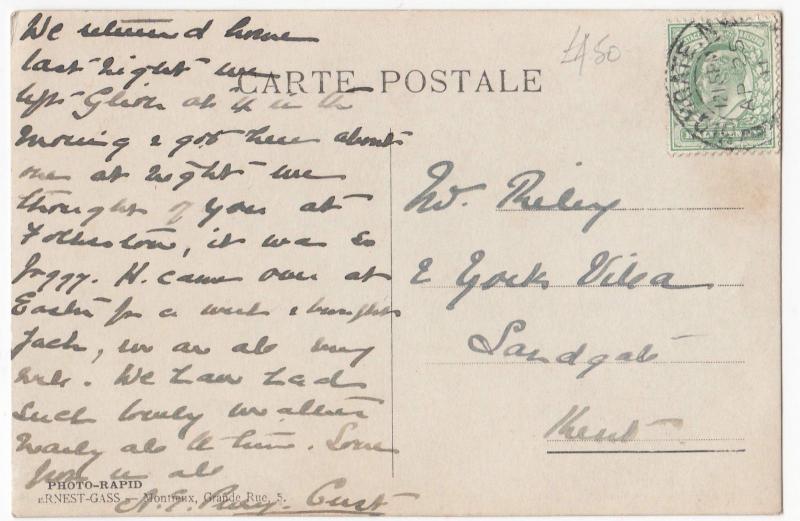 We returned home
last night we
CARTE POSTALE
£4.50
left Glion at in the
morning & got here about
one at night we
thought of you at
Folkeston, it was so
foggy. H. came over at
Easter for a week & brought
Jack, we are all very
well. We have had
such lovely weather
nearly all the time. Love
from us all
A.E.
PHOTO-RAPID
ERNEST-GASS — Montreux, Grande Rue, 5.
Riley
2 York Villa
Sandgate
Kent
AP 25